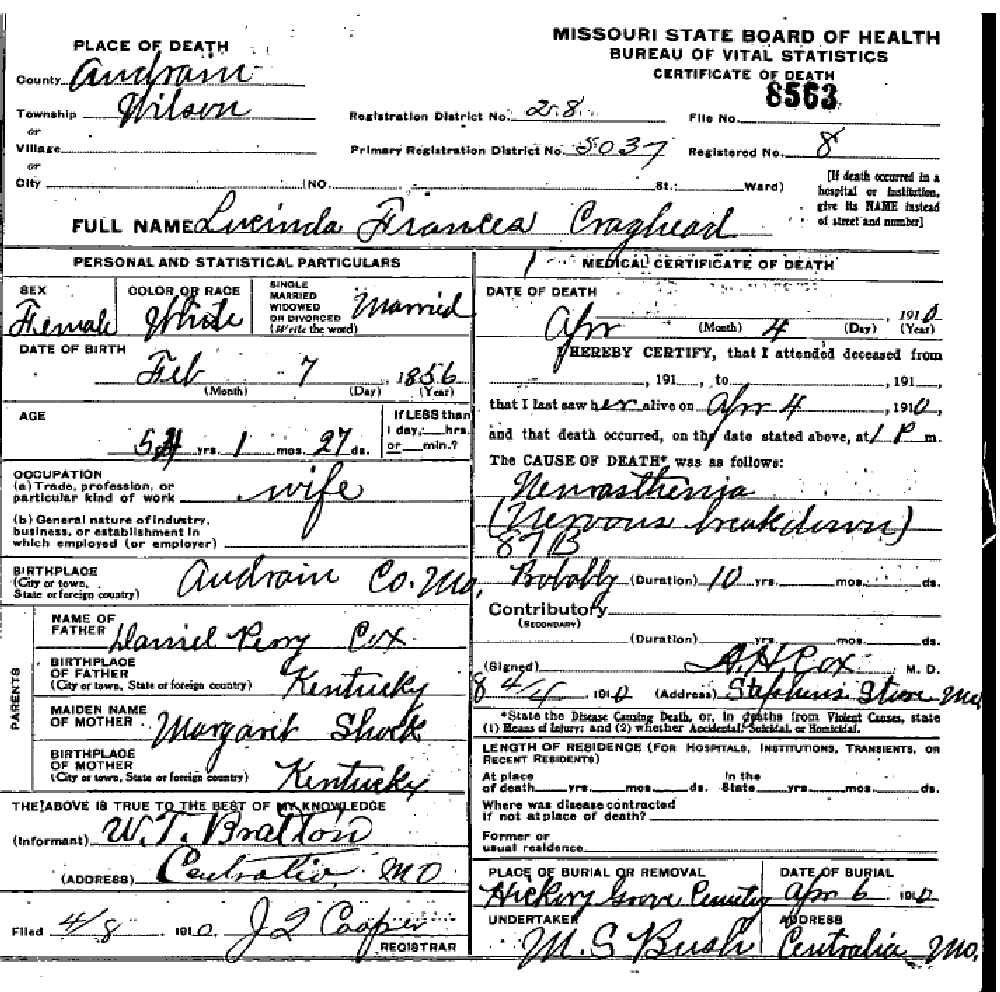 MISSOURI STATE BOARD OF HEALTH
BUREAU OF VITAL STATISTICS
CERTIFICATE OF DEATH
8563
PLACE OF DEATH
County Audrain
Township Wilson
or
Village
or
City (NO. St.; Ward)
Registration District No. 28
File No.
Primary Registration District No. 5037
Registered No. 8
[If death occurred in a
hospital or institution,
give its NAME instead
of street and number]
FULL NAME Lucinda Frances Craghead
PERSONAL AND STATISTICAL PARTICULARS
SEX
Female
COLOR OR RACE
White
SINGLE
MARRIED
WIDOWED
OR DIVORCED
(Write the word)
Married
DATE OF BIRTH
Feb 7, 1856
(Month) (Day) (Year)
AGE
54 yrs. 1 mos. 27 ds.
If LESS than
1 day, hrs.
or min.?
OCCUPATION
(a) Trade, profession, or
particular kind of work wife
(b) General nature of industry,
business, or establishment in
which employed (or employer)
BIRTHPLACE
(City or town,
State or foreign country)
Audrain Co. Mo.
PARENTS
NAME OF
FATHER Daniel Perry Cox
BIRTHPLACE
OF FATHER
(City or town, State or foreign country) Kentucky
MAIDEN NAME
OF MOTHER Margaret Shock
BIRTHPLACE
OF MOTHER
(City or town, State or foreign country) Kentucky
THE ABOVE IS TRUE TO THE BEST OF MY KNOWLEDGE
(Informant) W.T. Bratton
(ADDRESS) Centralia, MO
Filed 4/8 1910 J Q Cooper
REGISTRAR
MEDICAL CERTIFICATE OF DEATH
DATE OF DEATH
Apr 4 1910
(Month) (Day) (Year)
I HEREBY CERTIFY, that I attended deceased from
, 191 , to , 191 ,
that I last saw her alive on Apr 4, 1910,
and that death occurred, on the date stated above, at 1 P m.
The CAUSE OF DEATH* was as follows:
Neurasthenia
(Nervous breakdown)
87B
Probably (Duration) 10 yrs. mos. ds.
Contributory
(SECONDARY)
(Duration) yrs. mos. ds.
(Signed) A.H. Cox M. D.
8 4/4 1910 (Address) Stephens Store Mo
*State the Disease Causing Death, or, in deaths from Violent Causes, state
(1) Means of Injury; and (2) whether Accidental, Suicidal, or Homicidal.
LENGTH OF RESIDENCE (FOR HOSPITALS, INSTITUTIONS, TRANSIENTS, OR
RECENT RESIDENTS)
At place In the
of death yrs. mos. ds. State yrs. mos. ds.
Where was disease contracted
if not at place of death?
Former or
usual residence
PLACE OF BURIAL OR REMOVAL
Hickory Grove Cemetery
DATE OF BURIAL
Apr 6 1910
UNDERTAKER
M. S Bush
ADDRESS
Centralia Mo.